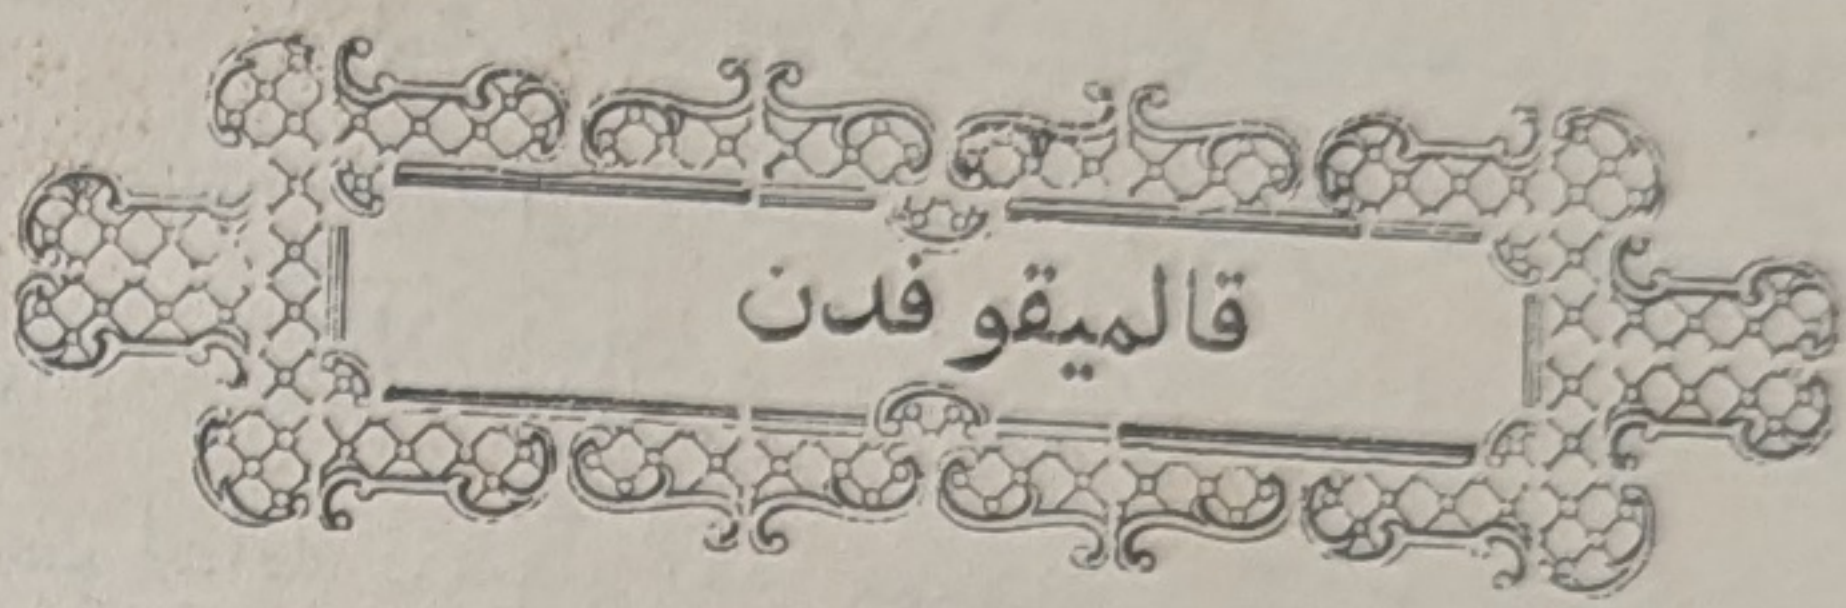 قالميقو فدن